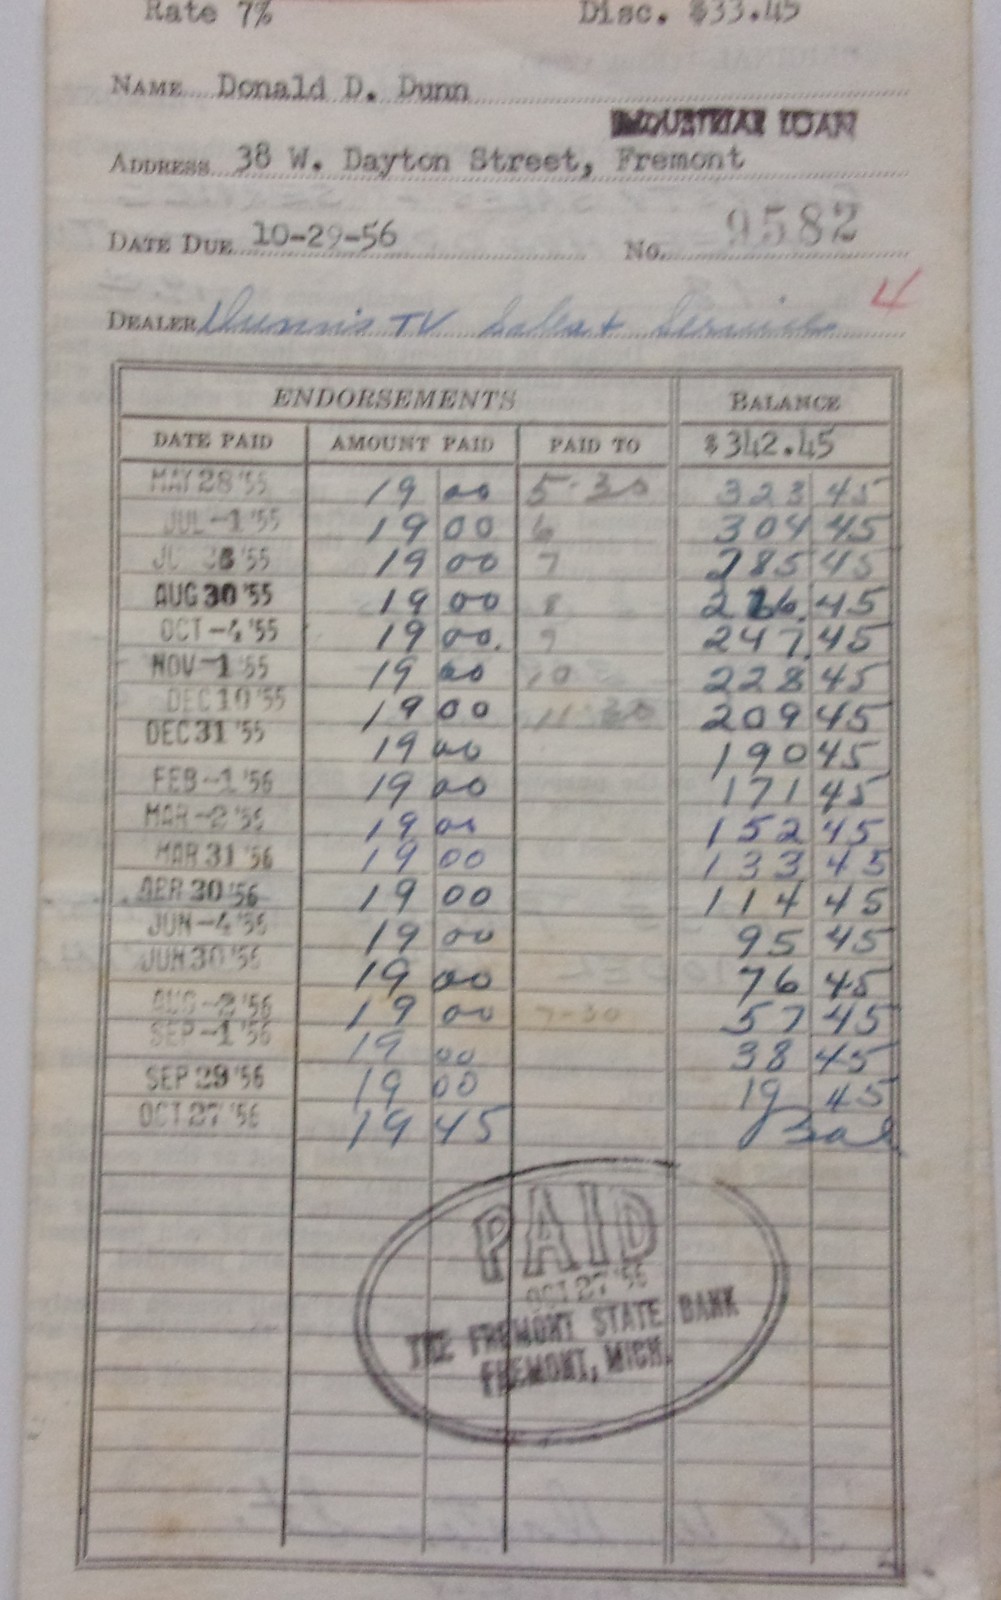 Rate 7% Disc. $33.45
NAME Donald D. Dunn
INDUSTRIAL LOAN
ADDRESS 38 W. Dayton Street, Fremont
DATE DUE 10-29-56 No. 9582
4
DEALER Dunn's TV Sales & Service
ENDORSEMENTS BALANCE
DATE PAID AMOUNT PAID PAID TO $342.45
MAY 28 '55 19 00 5-30 323 45
JUL -1 '55 19 00 6 304 45
28 '55 19 00 7 285 45
AUG 30 '55 19 00 8 266.45
OCT -4 '55 19 00. 9 247.45
NOV -1 '55 19 00 10 228 45
DEC 10 '55 19 00 11-30 209 45
DEC 31 '55 19 00 190 45
FEB -1 '56 19 00 171 45
MAR -2 '56 19 00 152 45
MAR 31 '56 19 00 133 45
APR 30 '56 19 00 114 45
JUN -4 '56 19 00 95 45
JUN 30 '56 19 00 76 45
AUG -2 '56 19 00 7-30 57 45
SEP -1 '56 19 00 38 45
SEP 29 '56 19 00 19 45
OCT 27 '56 19 45 Bal
PAID
OCT 27 '56
THE FREMONT STATE BANK
FREMONT, MICH.